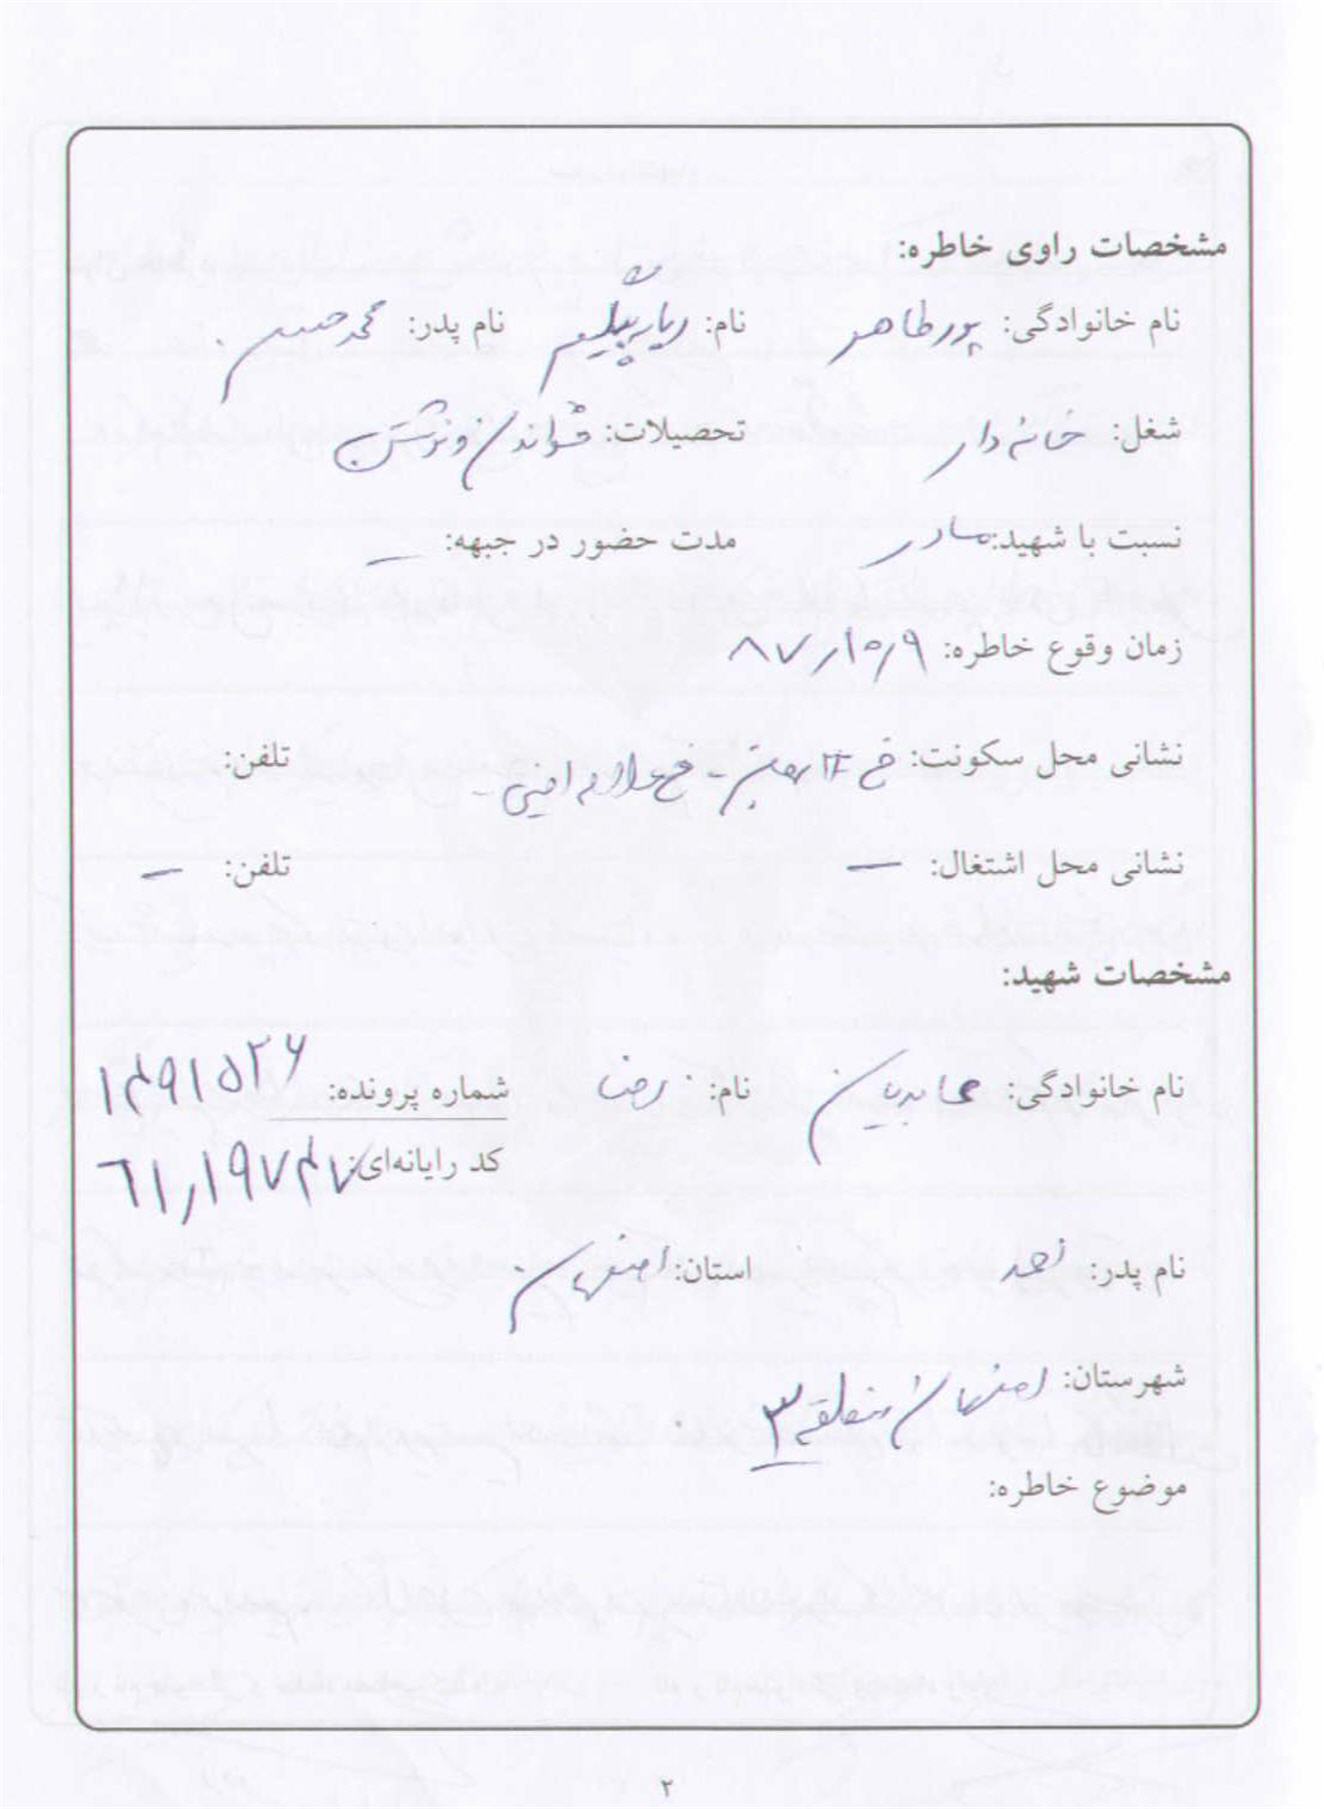 مشخصات راوی خاطره:
نام خانوادگی: پورطاهر نام: نام پدر: محمدحسین
شغل: خانه دار تحصیلات: خواندن و نوشتن
نسبت با شهید: مادر مدت حضور در جبهه: –
زمان وقوع خاطره: ۸۷/۱۰/۹
نشانی محل سکونت: خ تلفن:
نشانی محل اشتغال: – تلفن: –
مشخصات شهید:
نام خانوادگی: عابدیان نام: رضا شماره پرونده: ۱۴۹۱۵۲۶
کد رایانه‌ای: ۶۱/۱۹۷۴۷
نام پدر: استان: اصفهان
شهرستان: اصفهان منطقه ۳
موضوع خاطره:
۲